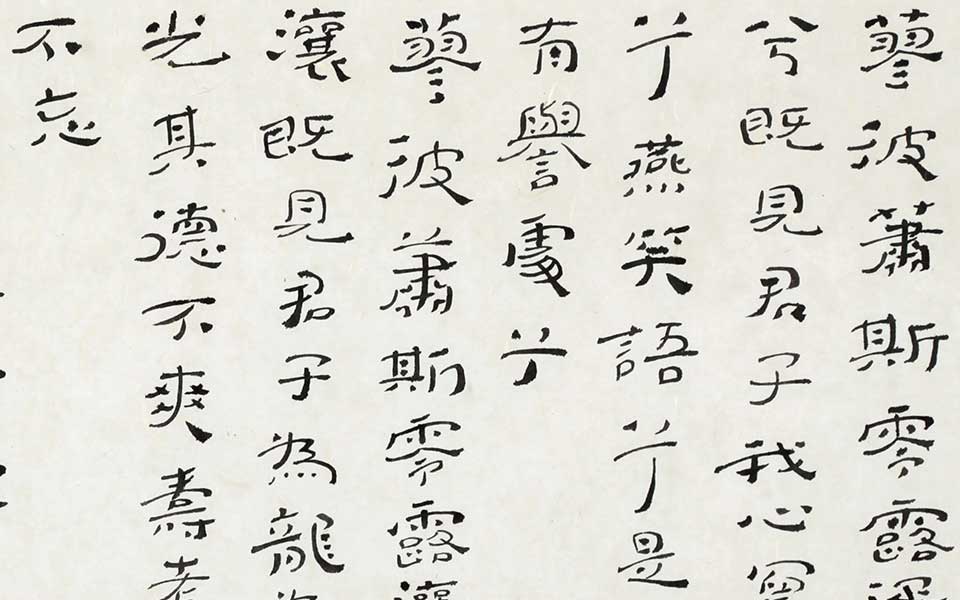 蓼彼蕭斯零露
兮既見君子我心寫
兮燕笑語兮是
有譽處兮
蓼彼蕭斯零露瀼
瀼既見君子為龍
光其德不爽壽考
不忘